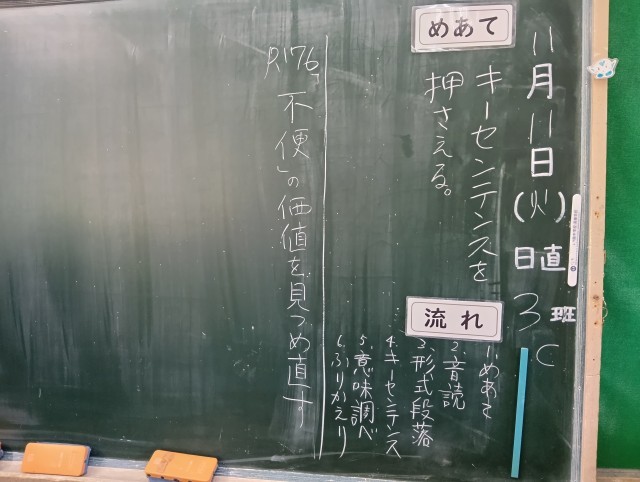 11月11日(火)
日直
3班
C
めあて
キーセンテンスを
押さえる。
流れ
1.めあて
2.音読
3.形式段落
4.キーセンテンス
5.意味調べ
6.ふりかえり
P.176「不便」の価値を見つめ直す